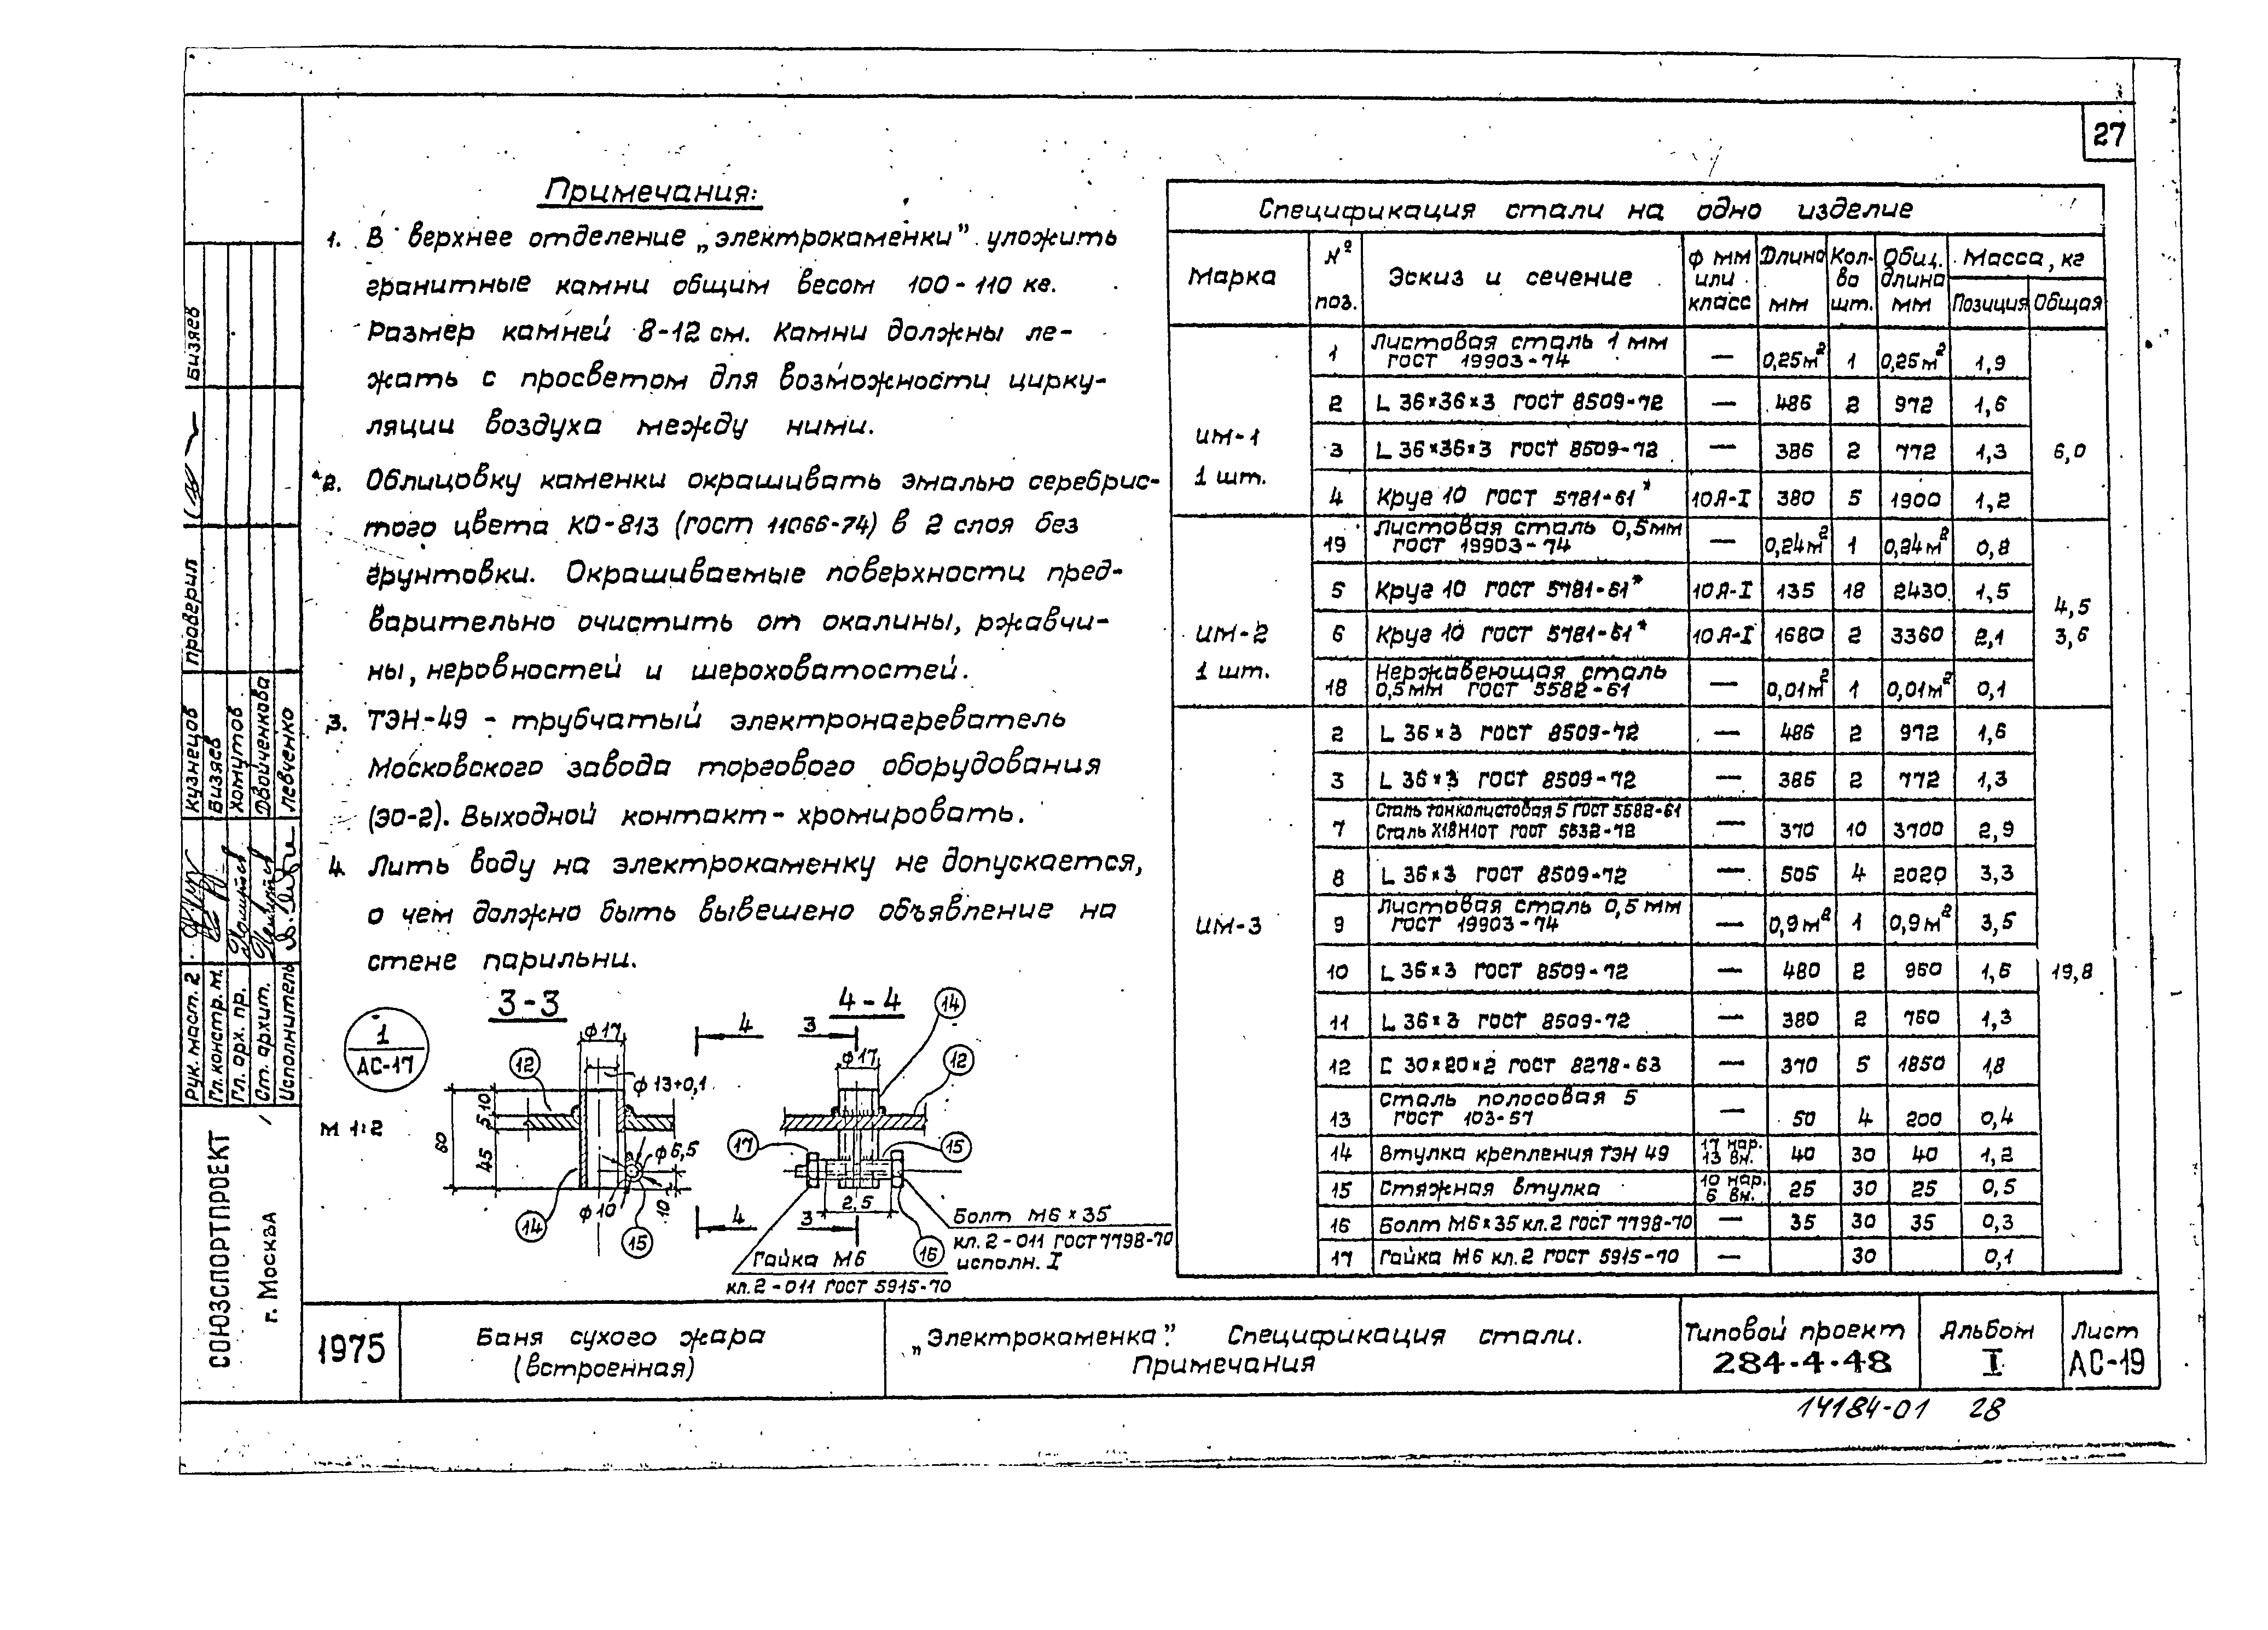 27
Примечания:
1. В верхнее отделение „электрокаменки” уложить
гранитные камни общим весом 100-110 кг.
Размер камней 8-12 см. Камни должны ле-
жать с просветом для возможности цирку-
ляции воздуха между ними.
2. Облицовку каменки окрашивать эмалью серебрис-
того цвета КО-813 (ГОСТ 11066-74) в 2 слоя без
грунтовки. Окрашиваемые поверхности пред-
варительно очистить от окалины, ржавчи-
ны, неровностей и шероховатостей.
3. ТЭН-49 - трубчатый электронагреватель
Московского завода торгового оборудования
(ЭО-2). Выходной контакт - хромировать.
4. Лить воду на электрокаменку не допускается,
о чем должно быть вывешено объявление на
стене парильни.
1
АС-17
М 1:2
3-3
ф17
ф13+0,1
12
5,10
60
45
ф6,5
ф10
10
14
15
4
4
4-4
3
3
ф17
14
12
17
15
2,5
16
Гайка М6
кл.2-011 ГОСТ 5915-70
Болт М6×35
кл.2-011 ГОСТ 7798-70
исполн. I
Спецификация стали на одно изделие
Марка | № поз. | Эскиз и сечение | ф мм или класс | Длина мм | Кол-во шт. | Общ. длина мм | Масса, кг Позиция | Общая
ИМ-1 1 шт. | 6,0
1 | Листовая сталь 1 мм ГОСТ 19903-74 | — | 0,25м² | 1 | 0,25м² | 1,9
2 | L 36×36×3 ГОСТ 8509-72 | — | 486 | 2 | 972 | 1,6
3 | L 36×36×3 ГОСТ 8509-72 | — | 386 | 2 | 772 | 1,3
4 | Круг 10 ГОСТ 5781-61* | 10А-I | 380 | 5 | 1900 | 1,2
ИМ-2 1 шт. | 4,5 3,6
19 | Листовая сталь 0,5мм ГОСТ 19903-74 | — | 0,24м² | 1 | 0,24м² | 0,8
5 | Круг 10 ГОСТ 5781-61* | 10А-I | 135 | 18 | 2430 | 1,5
6 | Круг 10 ГОСТ 5781-61* | 10А-I | 1680 | 2 | 3360 | 2,1
18 | Нержавеющая сталь 0,5мм ГОСТ 5582-61 | — | 0,01м² | 1 | 0,01м² | 0,1
ИМ-3 | 19,8
2 | L 36×3 ГОСТ 8509-72 | — | 486 | 2 | 972 | 1,6
3 | L 36×3 ГОСТ 8509-72 | — | 386 | 2 | 772 | 1,3
7 | Сталь тонколистовая 5 ГОСТ 5582-61 Сталь Х18Н10Т ГОСТ 5632-72 | — | 370 | 10 | 3700 | 2,9
8 | L 36×3 ГОСТ 8509-72 | — | 505 | 4 | 2020 | 3,3
9 | Листовая сталь 0,5мм ГОСТ 19903-74 | — | 0,9м² | 1 | 0,9м² | 3,5
10 | L 36×3 ГОСТ 8509-72 | — | 480 | 2 | 960 | 1,6
11 | L 36×3 ГОСТ 8509-72 | — | 380 | 2 | 760 | 1,3
12 | С 30×20×2 ГОСТ 8278-63 | — | 370 | 5 | 1850 | 1,8
13 | Сталь полосовая 5 ГОСТ 103-57 | — | 50 | 4 | 200 | 0,4
14 | Втулка крепления ТЭН 49 | 17 нар. 13 вн. | 40 | 30 | 40 | 1,2
15 | Стяжная втулка | 10 нар. 6 вн. | 25 | 30 | 25 | 0,5
16 | Болт М6×35 кл.2 ГОСТ 7798-70 | — | 35 | 30 | 35 | 0,3
17 | Гайка М6 кл.2 ГОСТ 5915-70 | — | 30 | 0,1
Рук. маст. 2 Кузнецов
Гл. констр. м. Визяев
Гл. арх. пр. Хомутов
Ст. архит. Двойченкова
Исполнитель Левченко
Проверил Бизяев
СОЮЗСПОРТПРОЕКТ
г. Москва
1975
Баня сухого жара
(встроенная)
„Электрокаменка”. Спецификация стали.
Примечания
Типовой проект
284-4-48
Альбом
I
Лист
АС-19
14184-01 28